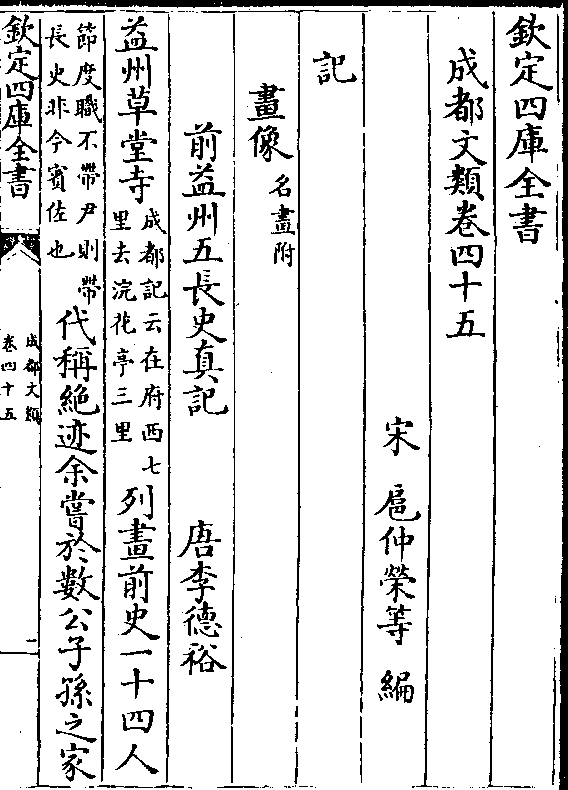 欽定四庫全書
成都文類卷四十五
宋 扈仲榮等 編
記
畫像名畫附
前益州五長史真記 唐李德裕
益州草堂寺成都記云在府西七
里去浣花亭三里列畫前史一十四人
節度職不帶尹則帶
長史非今賓佐也代稱絶迹余嘗於數公子孫之家
欽定四庫全書
成都文類
卷四十五
一